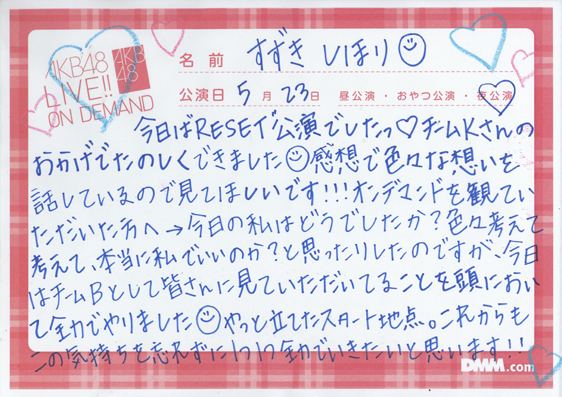 AKB48
LIVE!!
ON DEMAND
AKB
48
名前 すずき しほり
公演日 5月23日 昼公演・おやつ公演・夜公演
今日はRESET公演でしたっ♡チームKさんの
おかげでたのしくできました☺感想で色々な想いを
話しているので見てほしいです!!!オンデマンドを観てい
ただいた方へ→今日の私はどうでしたか?色々考えて
考えて、本当に私でいいのか?と思ったりしたのですが、今日
はチームBとして皆さんに見ていただいてることを頭におい
て全力でやりました☺やっと立てたスタート地点。これからも
この気持ちを忘れずに1つ1つ全力でいきたいと思います!!
DMM.com